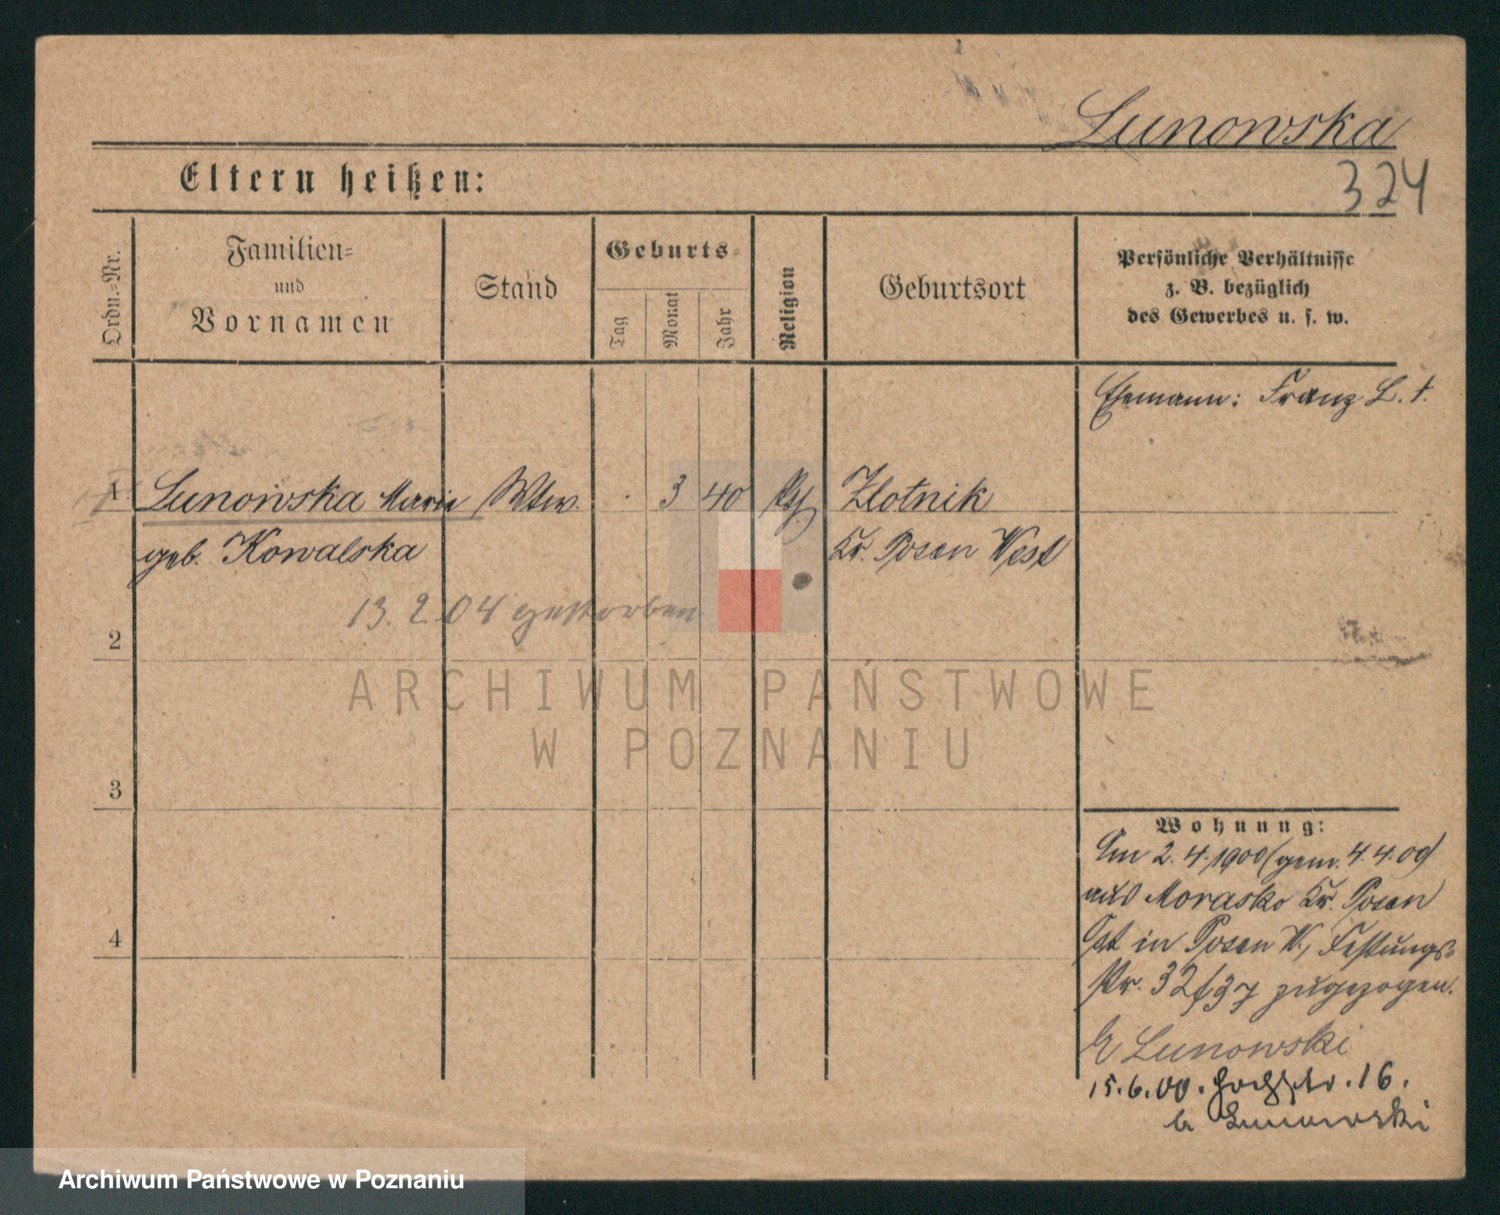 Lunowska
324
Eltern heißen:
Ordn.-Nr.
Familien-
und
Vornamen
Stand
Geburts-
Tag
Monat
Jahr
Religion
Geburtsort
Persönliche Verhältnisse
z. B. bezüglich
des Gewerbes u. s. w.
Ehemann: Franz L. †.
1 Lunowska Marie Wtw. 3 40 Zlotnik
geb. Kowalska Kr. Posen West
13.2.04 gestorben
2
3
4
Wohnung:
Am 2.4.1900 (gem. 4.4.00)
aus Morasko Kr. Posen
Ost in Posen W., Festungs-
Str. 32/37 zugezogen.
b Lunowski
15.6.00. Hochstr. 16.
b Lunowski
ARCHIWUM PAŃSTWOWE
W POZNANIU
Archiwum Państwowe w Poznaniu